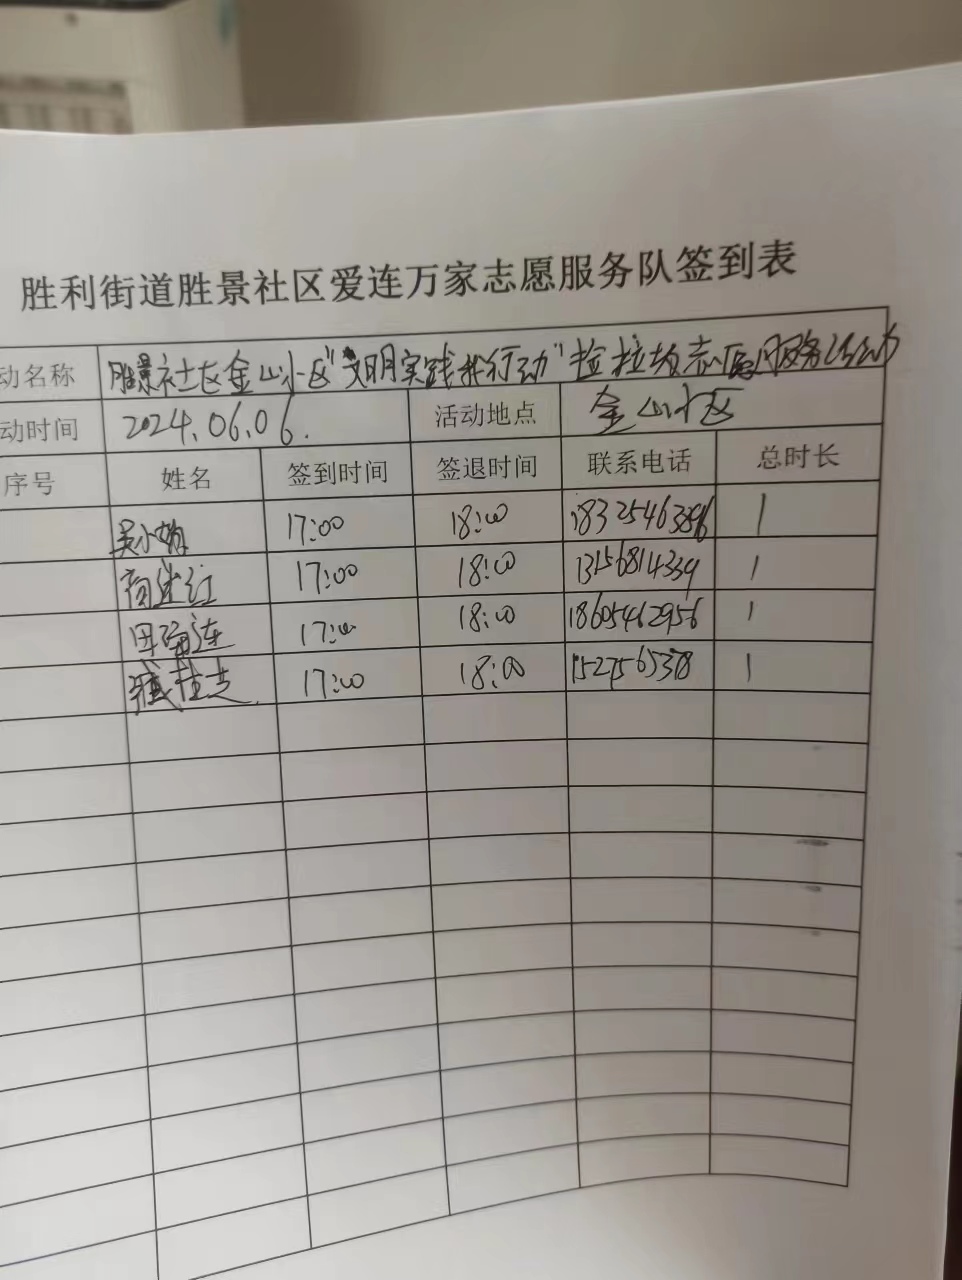 胜利街道胜景社区爱连万家志愿服务队签到表
动名称 胜景社区金山小区"文明实践我行动"捡拉圾志愿服务活动
动时间 2024.06.06. 活动地点 金山小区
序号 姓名 签到时间 签退时间 联系电话 总时长
吴小娟 17:00 18:00 18325463896 1
17:00 18:00 13156814339 1
田 连 17:00 18:00 18605462956 1
17:00 18:00 15275653 1